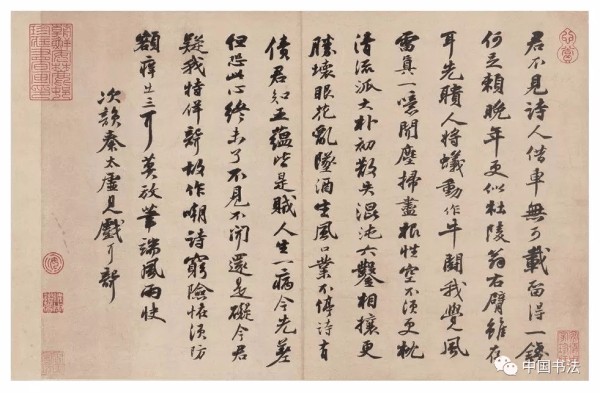 君不見詩人借車無可載留得一錢
何足賴晚年更似杜陵翁右臂雖存
耳先聵人將蟻動作牛鬪我覺風
雷真一噫聞塵掃盡根性空不須更枕
清流派大朴初散失混沌六鑿相攘更
勝壞眼花亂墜酒生風口業不停詩有
債君知五蘊皆是賊人生一病今先差
但恐此心終未了不見不聞還是礙今君
疑我特佯聾故作嘲詩窮險怪須防
額癢出三耳莫放筆端風雨快
次韻秦太虛見戲耳聾
中国书法